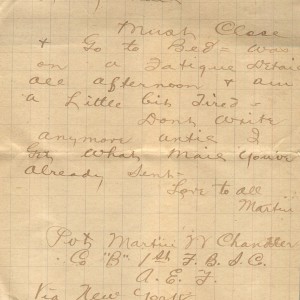 Must Close
& Go to Bed = Was
on a Fatigue Detail
all afternoon & am
a Little bit Tired =
Dont Write
anymore until I
Get What Mail You've
Already Sent =
Love to all
Martin
Pvt Martin W Chandler
Co "B" 1st F. B. S. C.
A. E. F.
Via New York